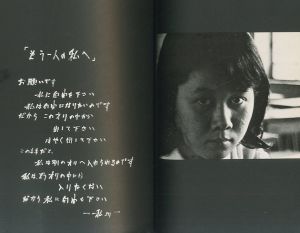 「もう一人の私へ」
お願いです
私に自由を下さい
私は自由になりたいのです
だから このオリのやから
出して下さい
はやく出して下さい
このままだと、
私は別のオリへ入れられるのです
私は、オリの中に
入りたくない
だから 私に自由を下さい